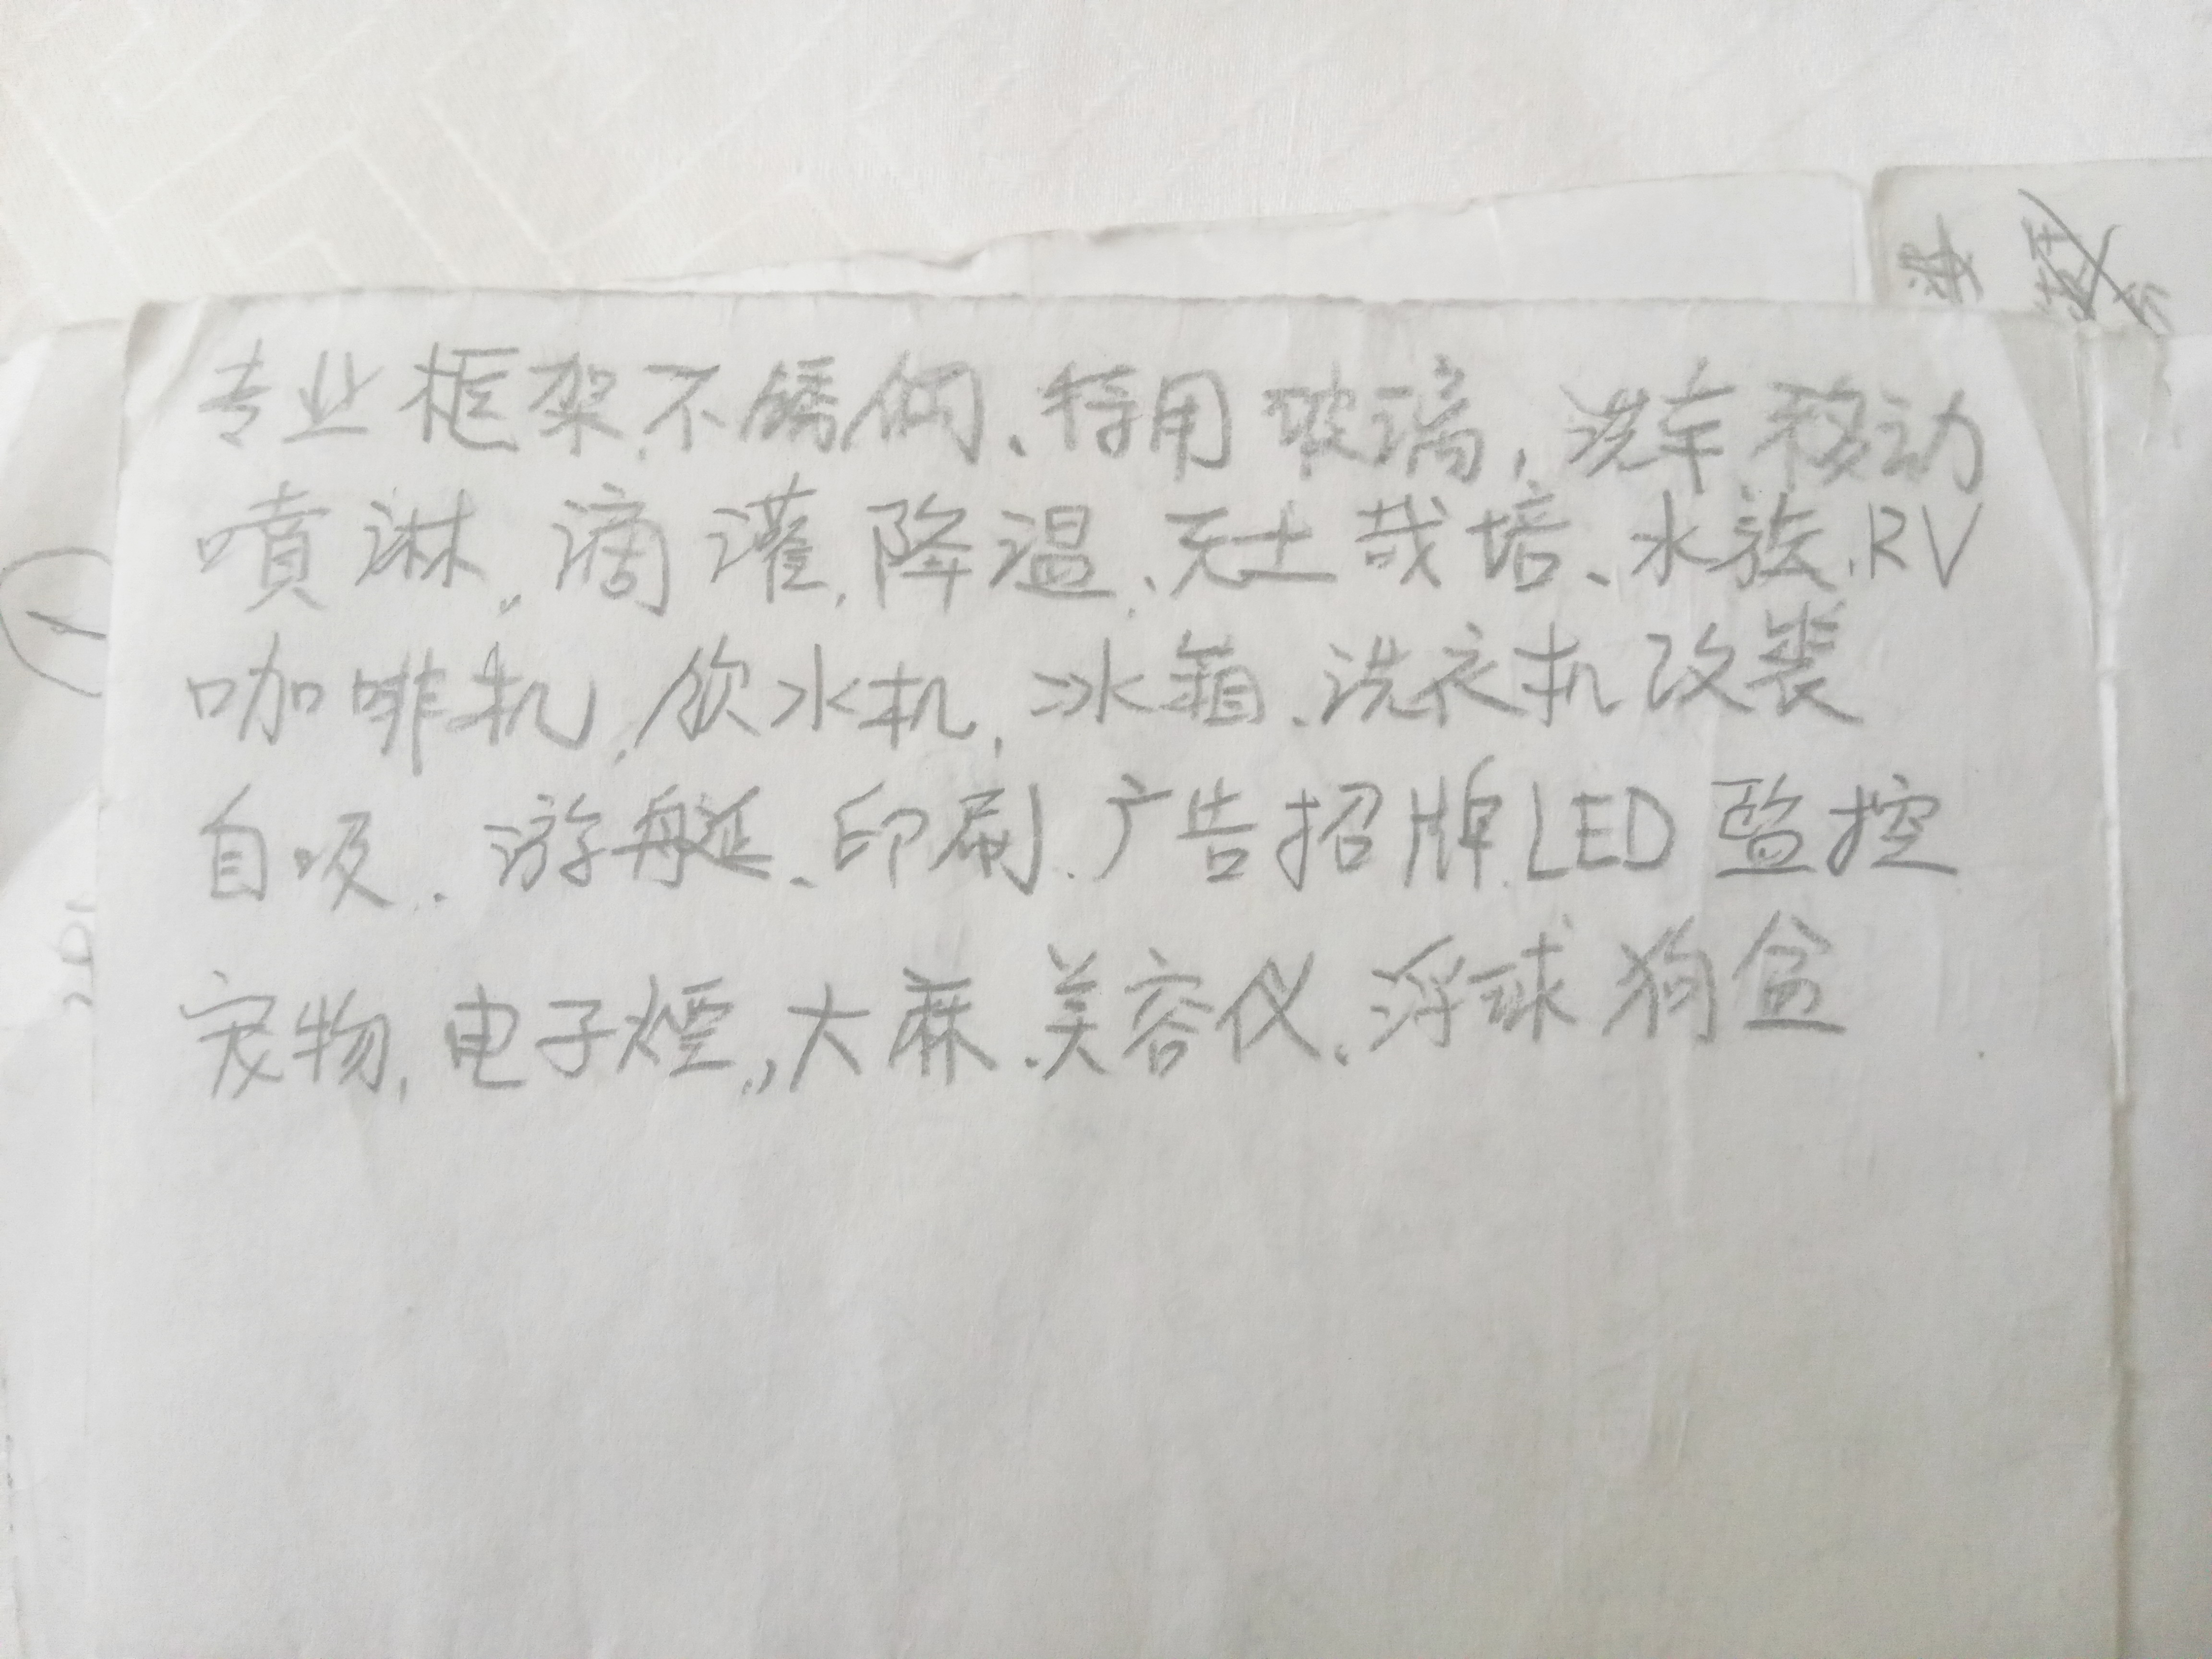 专业框架、不锈钢、特用玻璃，洗车移动
噴淋，滴灌，降温、无土栽培、水族、RV
咖啡机，饮水机，冰箱、洗衣机改装
自吸．游艇、印刷、广告招牌、LED 监控
宠物，电子煙，大麻、美容仪、浮球狗盆